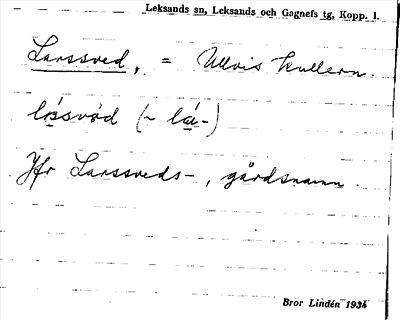 Leksands sn, Leksands och Gagnefs tg, Kopp. l.
Larssved, = Ullvis kullern.
lásvød (~ lá-)
Jfr Larssveds-, gårdsnamn.
Bror Lindén 1934